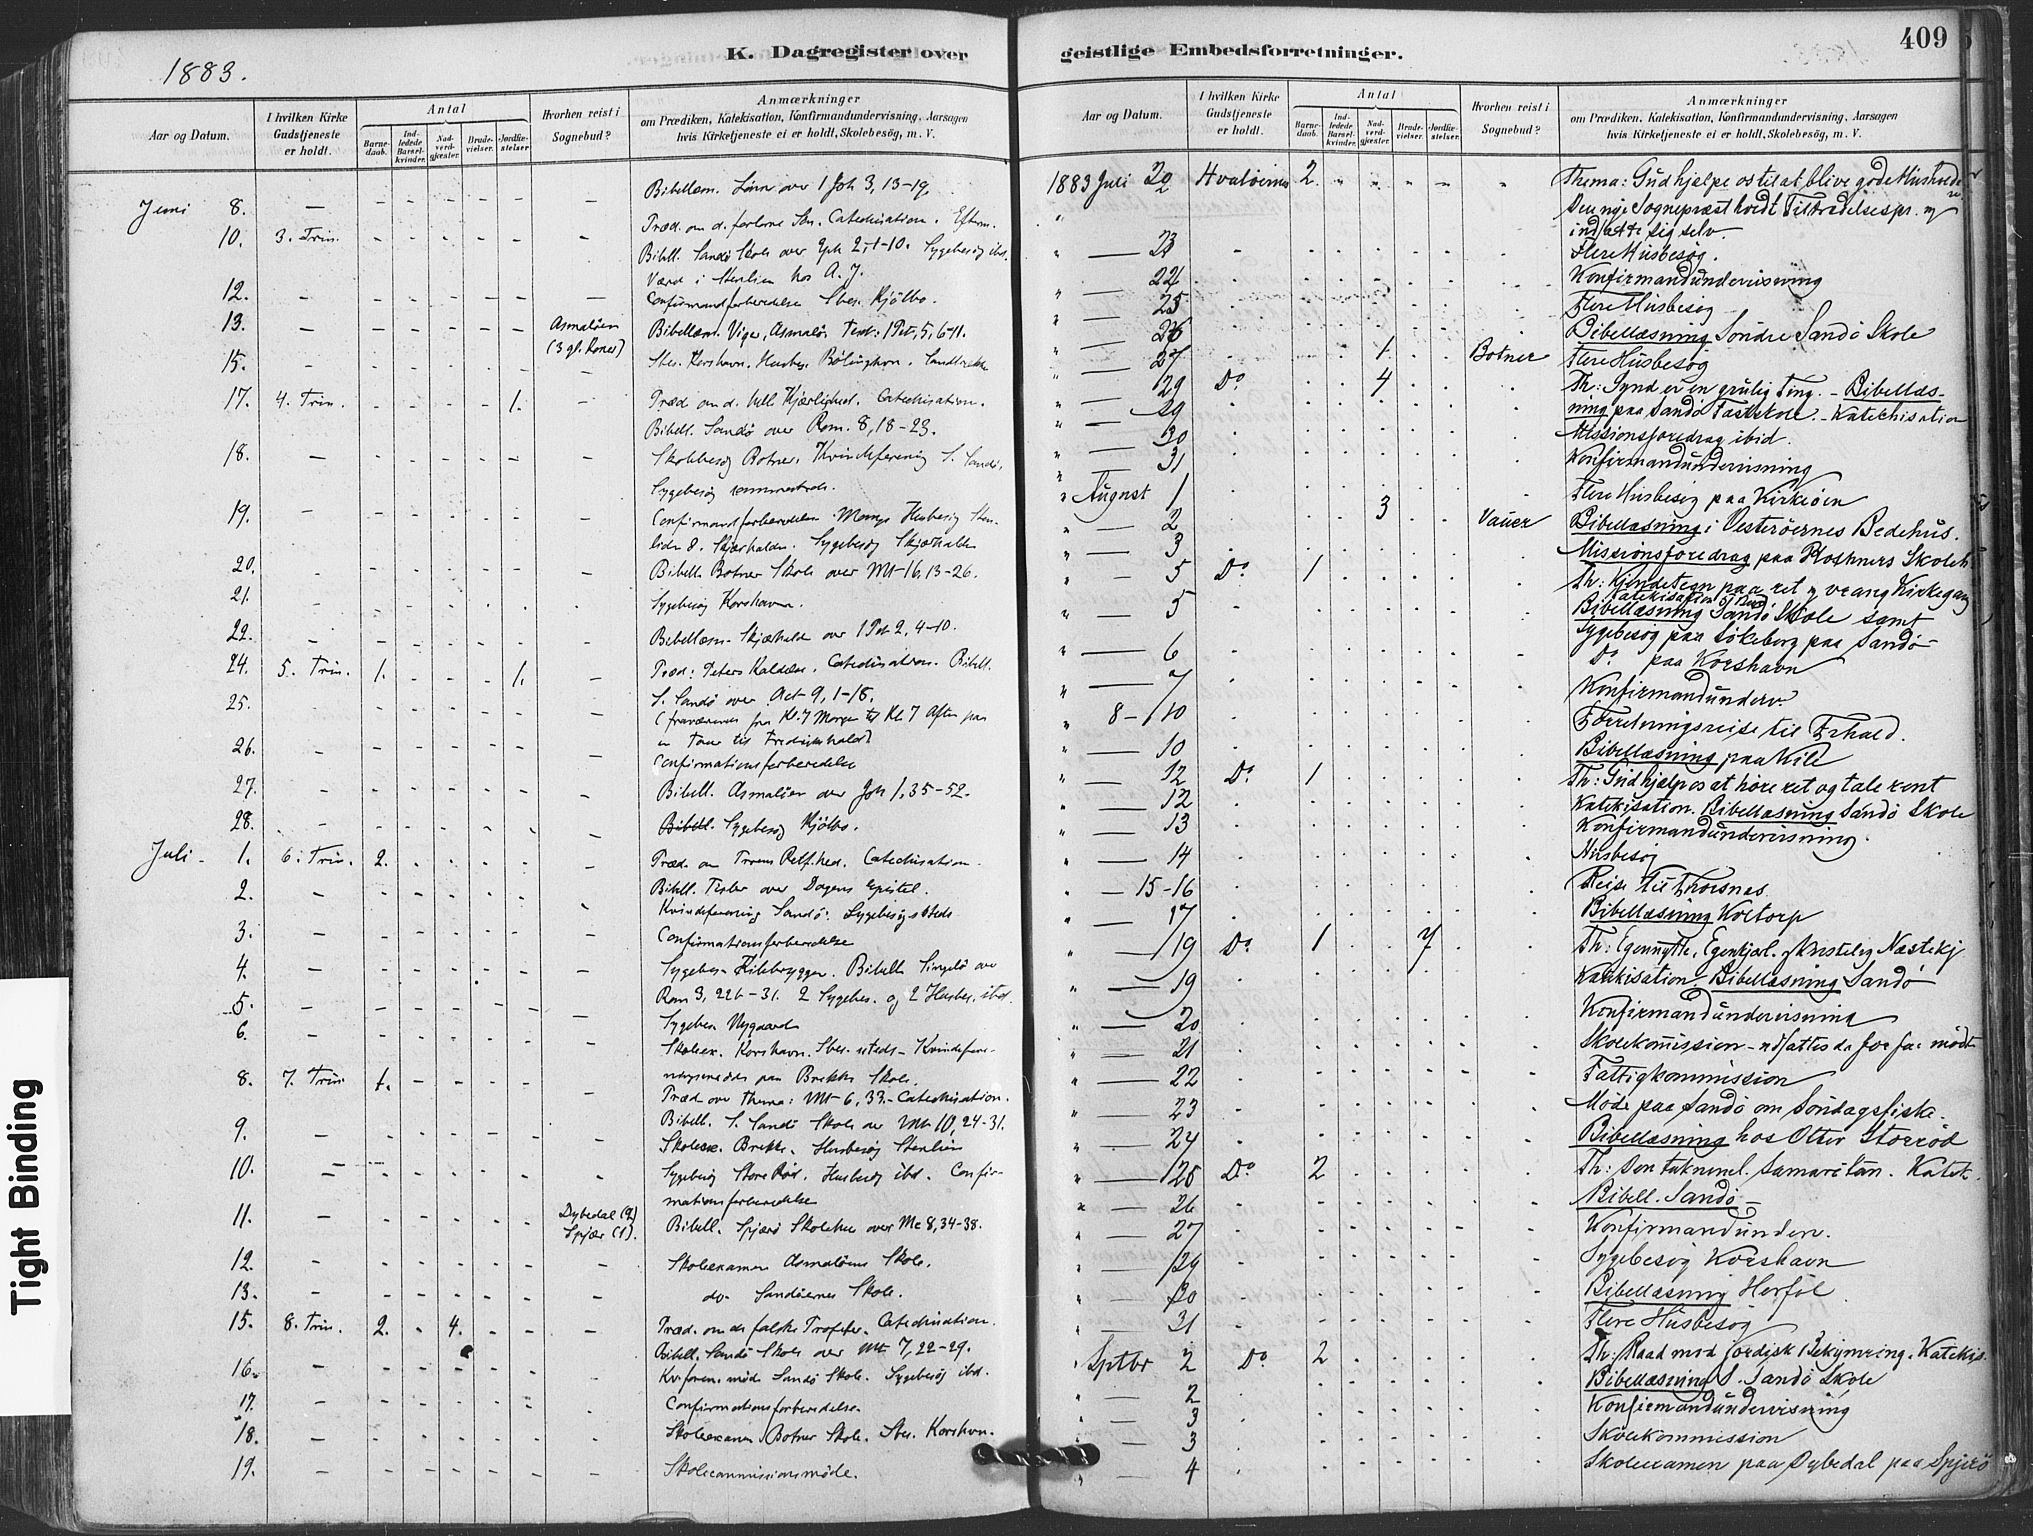 409
1883.
K. Dagregister over
geistlige Embedsforretninger.
Aar og Datum.
I hvilken Kirke Gudstjeneste er holdt.
Antal
Barnedaab.
Indledede Barselkvinder.
Nadverdgjæster.
Brudevielser.
Jordfæstelser
Hvorhen reist i Sognebud?
Anmærkninger
om Prædiken, Katekisation, Konfirmandundervisning, Aarsagen
hvis Kirketjeneste ei er holdt, Skolebesøg, m. V.
Bibellæsn. over 1 Joh 3, 13-19.
Juni 8. — - - - - - -
Præd. om d. forlorne Søn. Catechisation. Efterm.
10. 3. Trin. - - - - - -
Bibell. Sandø Skole over Eph 2, 1-10. Sygebesøg ibd.
hos A. J.
12. - - - - - - -
Confirmandforberedelse Kjölbo.
13. - - - - - - Asmaløen
Bibellæsn. Viger, Asmalø Text: 1 Pet. 5, 6-11.
(3 gl. Koner)
15. - - - - - - -
Korshavn.
17. 4. Trin. - - - - 1. -
Præd om d. Kjærlighed. Catechisation.
Bibell. Sandø over Rom. 8, 18-23.
18. — - - - - - -
Skolebesøg Botner. Kvindeforening S. Sandø.
Sygebesøg sammesteds.
19. - - - - - - -
Confirmandforberedelse.
Skjærhalden. Sygebesøg Skjærhalden
20. - - - - - - -
Bibell. Botner Skole over Mt 16, 13-26.
21. - - - - - - -
Sygebesøg Korshavn.
22. - - - - - - -
Bibellæsn. Skjærhald. over 1 Pet 2, 4-10.
24. 5. Trin. 1. - - - 1. -
Præd: Peters Kaldelse. Catechisation. Bibell.
S. Sandø over Act 9, 1-18.
25. - - - - - - -
(fraværende fra Kl. 7 Morgen til Kl 7 Aften paa
en Tour til Fredrikshald)
26. - - - - - - -
Confirmationsforberedelse
27. - - - - - - -
Bibell. Asmaløen over Joh 1, 35-52.
28. - - - - - - -
Bibell. Sygebesøg Kjölbo.
Juli - 1. 6. Trin. 2. - - - - -
Præd. om Troens Retf.hed. Catechisation.
Bibell. Tisler over Dagens Epistel.
2. - - - - - - -
Kvindeforening Sandø. Sygebesøg
3. - - - - - - -
Confirmationsforberedelse
4. - - - - - - -
Kilebryggen. Bibell. Singelø over
Rom 3, 22b-31. 2 Sygebes. og 2 Husbes. ibd.
5. - - - - - - -
Sygebes. Nygaard
6. - - - - - - -
Skoleex. Korshavn.
paa Brekke Skole.
8. 7. Trin 1. - - - - -
Præd over Thema: Mt 6, 33. - Catechisation.
Bibell. S. Sandø Skole over Mt 10, 24-31.
9. - - - - - - -
Skoleex. Brekke. Husbesøg Stenlien
10. - - - - - - -
Sygebesøg Store Rød. Husbesøg ibd. Confirmationsforberedelse
11. - - - - - - Dybedal (2) Spjær (1).
Bibell. Spjærø Skolehus over Mc 8, 34-38.
12. - - - - - - -
Skoleexamen Asmaløens Skole.
13. - - - - - - -
do Sandøernes Skole.
15. 8. Trin. 2. - 4. - - -
Præd. om de falske Profeter. Catechisation.
Bibell. Sandø Skole over Mt 7, 22-29.
16. - - - - - - -
Kv.foren. møde Sandø Skole. Sygebesøg ibd.
17. - - - - - - -
Confirmationsforberedelse.
18. - - - - - - -
Skoleexamen Botner Skole. Sbes. Korshavn.
19. - - - - - - -
Skolecommissionsmøde.
Aar og Datum.
I hvilken Kirke Gudstjeneste er holdt.
Antal
Barnedaab.
Indledede Barselkvinder.
Nadverdgjæster.
Brudevielser.
Jordfæstelser.
Hvorhen reist i Sognebud?
Anmærkninger
om Prædiken, Katekisation, Konfirmandundervisning, Aarsagen
hvis Kirketjeneste ei er holdt, Skolebesøg, m. V.
1883 Juli 22 Hvaløernes 2 " " " " "
Thema: Gud hjelpe os til at blive gode Husholdere.
Den nye Sognepræst holdt Tiltrædelsespr. og
indsatte sig selv.
" — 23
Flere Husbesøg.
" — 24
Konfirmandundervisning
" — 25
Flere Husbesøg
" — 26
Bibellæsning Søndre Sandø Skole
" — 27 1 Botner
Flere Husbesøg
" — 29 Do 4
Th: Synd er en grulig Ting. - Bibellæs-
" — 29
ning paa Sandø Fastskole. - Katekisation
" — 30
Missionsforedrag ibid.
" — 31
Konfirmandundervisning
" August 1
Flere Husbesøg paa Kirkeøen
" — 2 3 Vauer
Bibellæsning i Vesterøernes Bedehus.
" — 3
Missionsforedrag paa Rothners Skoleh.
" — 5 Do 1
Th: Kjendetegn paa ret og vrang Kirkegang
Katekisation
" — 5
Bibellæsning Sandø Skole samt
Sygebesøg paa Løkeberg paa Sandø
" — 6
Do paa Korshavn
" — 7
Konfirmandunderv.
" 8-10
Forretningsreise til Frhald.
" — 10
Bibellæsning paa Kile
" — 12 Do 1
Th: Gud hjælp os at høre ret og tale rent
" — 12
Katekisation. Bibellæsning Sandø Skole
" — 13
Konfirmandundervisning.
" — 14
Husbesøg
" — 15-16
Reise til Thorsnæs
" — 17
Bibellæsning Koltorp
" — 19 Do 1 7
Th: Egennytte, Egenkjærl. og kristelig Næstekj
" — 19
Katekisation. Bibellæsning Sandø
" — 20
Konfirmandundervisning
" — 21
Skolekomission - udsattes da for faa mødte
" — 22
Fattigkommission
" — 23
Møde paa Sandø om Søndagsfiske.
" — 24
Bibellæsning hos Otter Storrød
" — 26 Do 2
Th: Den taknemel. Samaritan. Katek.
" — 26
Bibell. Sandø
" — 27
Konfirmandunderv.
" — 29
Sygebesøg Korshavn
" — 30
Bibellæsning Herføl
" — 31
Flere Husbesøg
" Sptbr 2 Do 2
Th: Raad mod Jordisk Bekymring. Katekis.
" — 2
Bibellæsning S. Sandø Skole
" — 3
Konfirmandundervisning
" — 3
Skolekommission
" — 4
Skoleexamen paa Dybedal paa Spjærø
Tight Binding